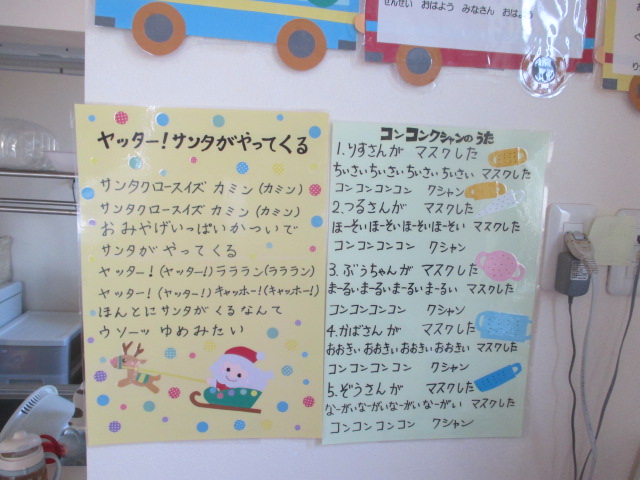 せんせい おはよう みなさん おはよう
ヤッター！サンタがやってくる
サンタクロースイズ カミン(カミン)
サンタクロースイズ カミン(カミン)
おみやげいっぱいかついで
サンタが やってくる
ヤッター！(ヤッター！)ラララン(ラララン)
ヤッター！(ヤッター！)キャッホー！(キャッホー！)
ほんとにサンタが くるなんて
ウソーッ ゆめみたい
コンコンクシャンのうた
1.りすさんが マスクした
ちぃさい ちぃさい ちぃさい ちぃさい マスクした
コンコンコンコン クシャン
2.つるさんが マスクした
ほーそいほーそいほーそいほーそい マスクした
コンコンコンコン クシャン
3.ぶうちゃんが マスクした
まーるいまーるいまーるいまーるい マスクした
コンコンコンコン クシャン
4.かばさんが マスクした
おおきい おおきい おおきい おおきい マスクした
コンコンコンコン クシャン
5.ぞうさんが マスクした
なーがいなーがいなーがいなーがい マスクした
コンコンコンコン クシャン